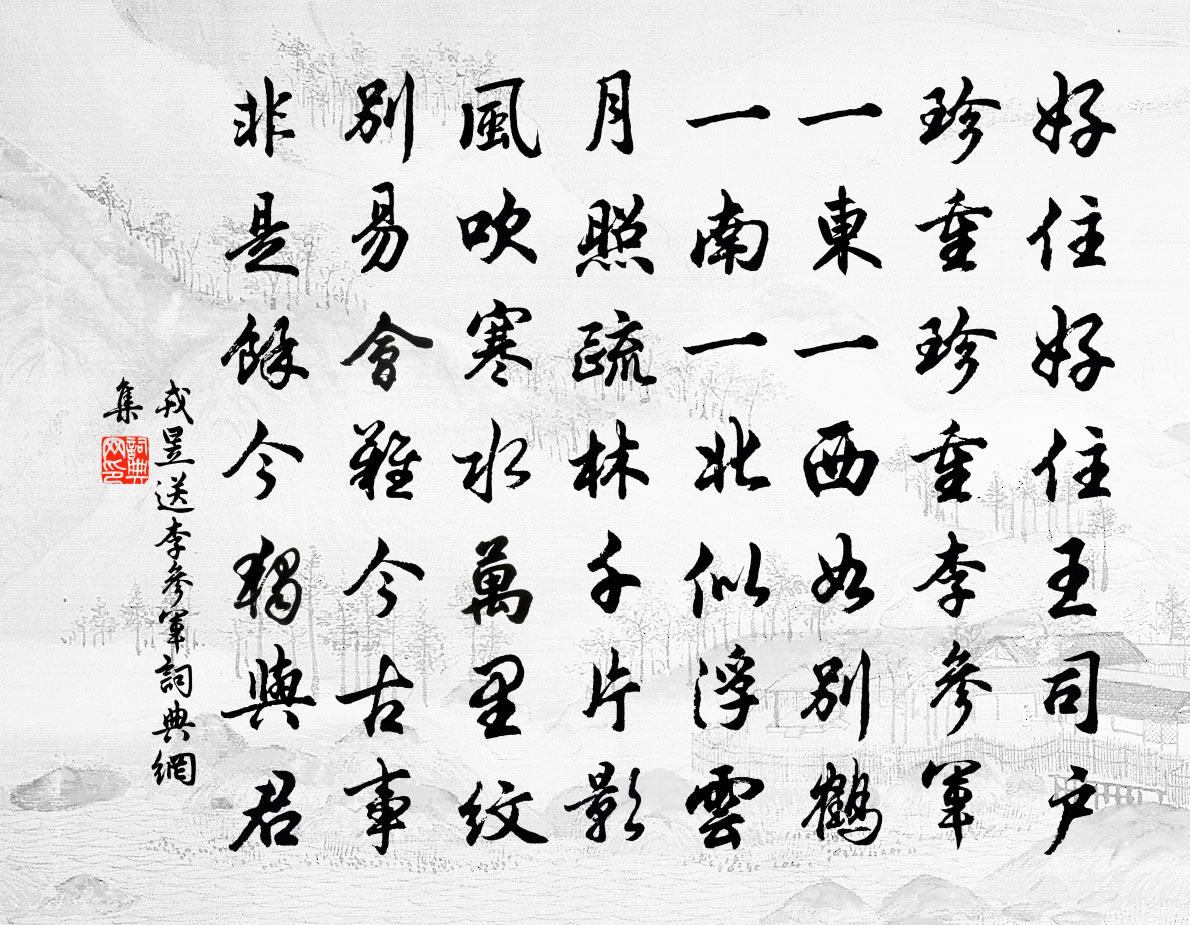 好住好住王司戶
珍重珍重李參軍
一東一西如別鶴
一南一北似浮雲
月照疏林千片影
風吹寒水萬里紋
別易會難今古事
非是餘今獨與君
戎昱送李參軍詞典網
集
詞典網印